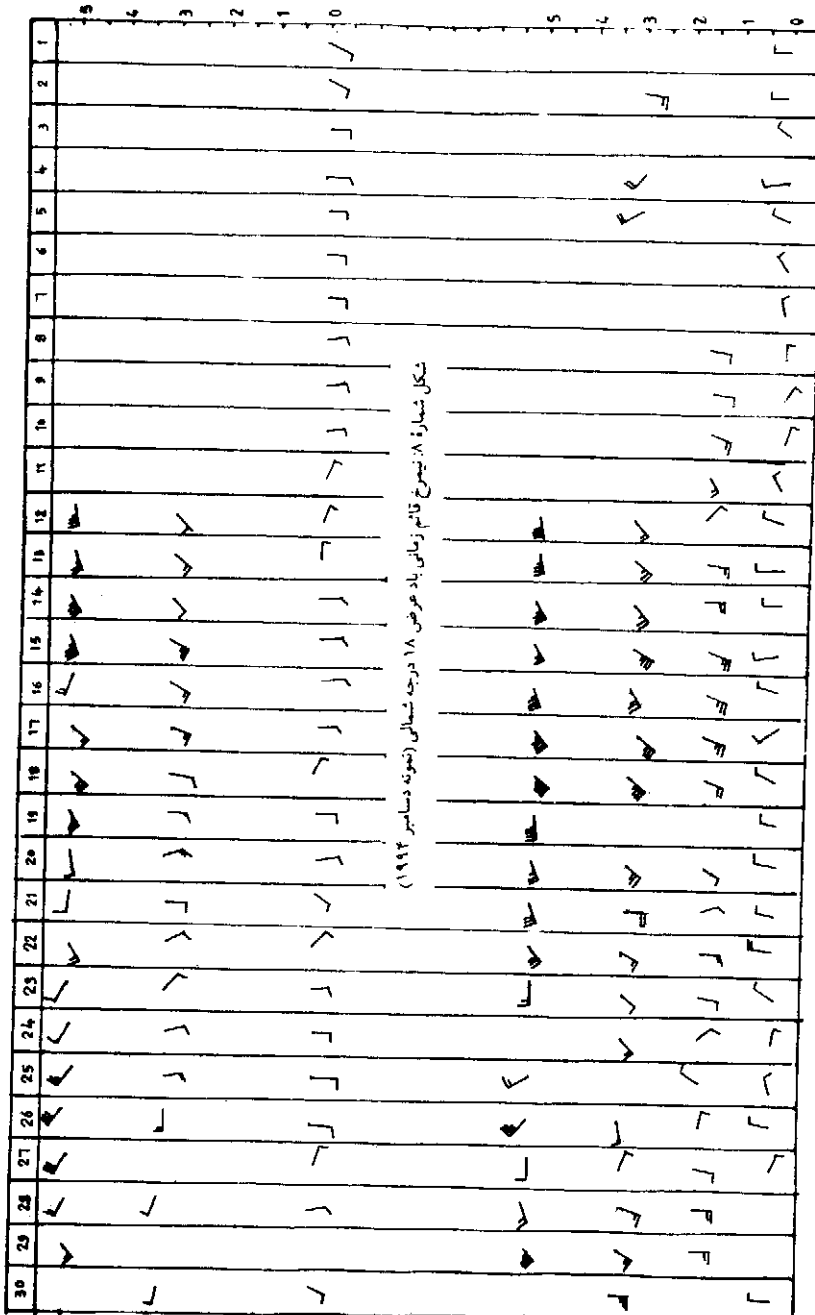 5 3 2 1 0 5 4 3 2 1 0
1
2
3
4
5
6
7
8
9
10
11
12
13
14
15
16
17
18
19
20
21
22
23
24
25
26
27
28
29
30
شکل شمارهٔ ۸: نیمرخ قائم زمانی باد عرض ۱۸ درجه شمالی (نمونه دسامبر ۱۹۹۴)